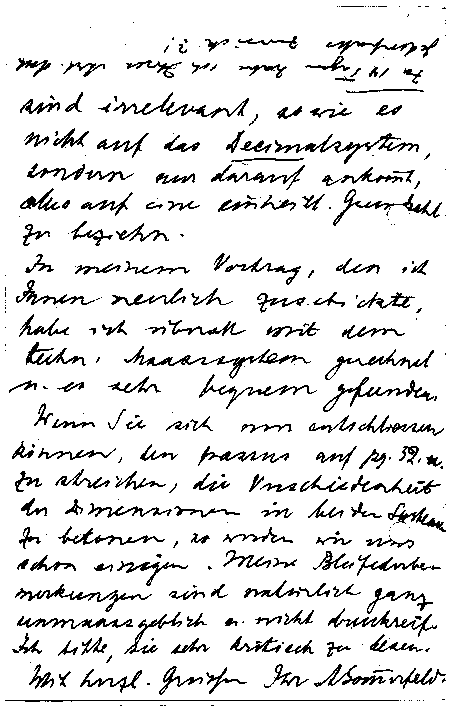 sind irrelevant, sowie es
nicht auf das Decimalsystem,
sondern nur darauf ankommt,
alles auf eine einheitl. Grundzahl
zu beziehn.
In meinem Vortrag, den ich
Ihnen neulich zuschickte,
habe ich überall mit dem
techn. Maassystem gerechnet
u. es sehr bequem gefunden.
Wenn Sie sich nun entschliessen
können, den passus auf pg. 32 u.
zu streichen, die Verschiedenheit
der Dimensionen in beiden Systemen
zu betonen, so werden wir uns
schon einigen. Meine Bleifederbe-
merkungen sind natürlich ganz
unmaassgeblich u. nicht druckreif.
Ich bitte, sie sehr kritisch zu lesen.
Mit herzl. Grüssen Ihr ASommerfeld.
In 14 Tagen habe ich Ihren